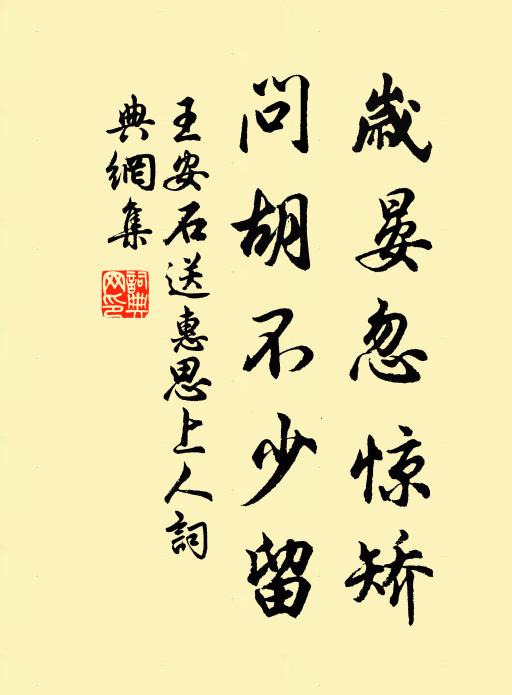 歲晏忽惊矫
問胡不少留
王安石送惠思上人詞
典網集
詞典
网印